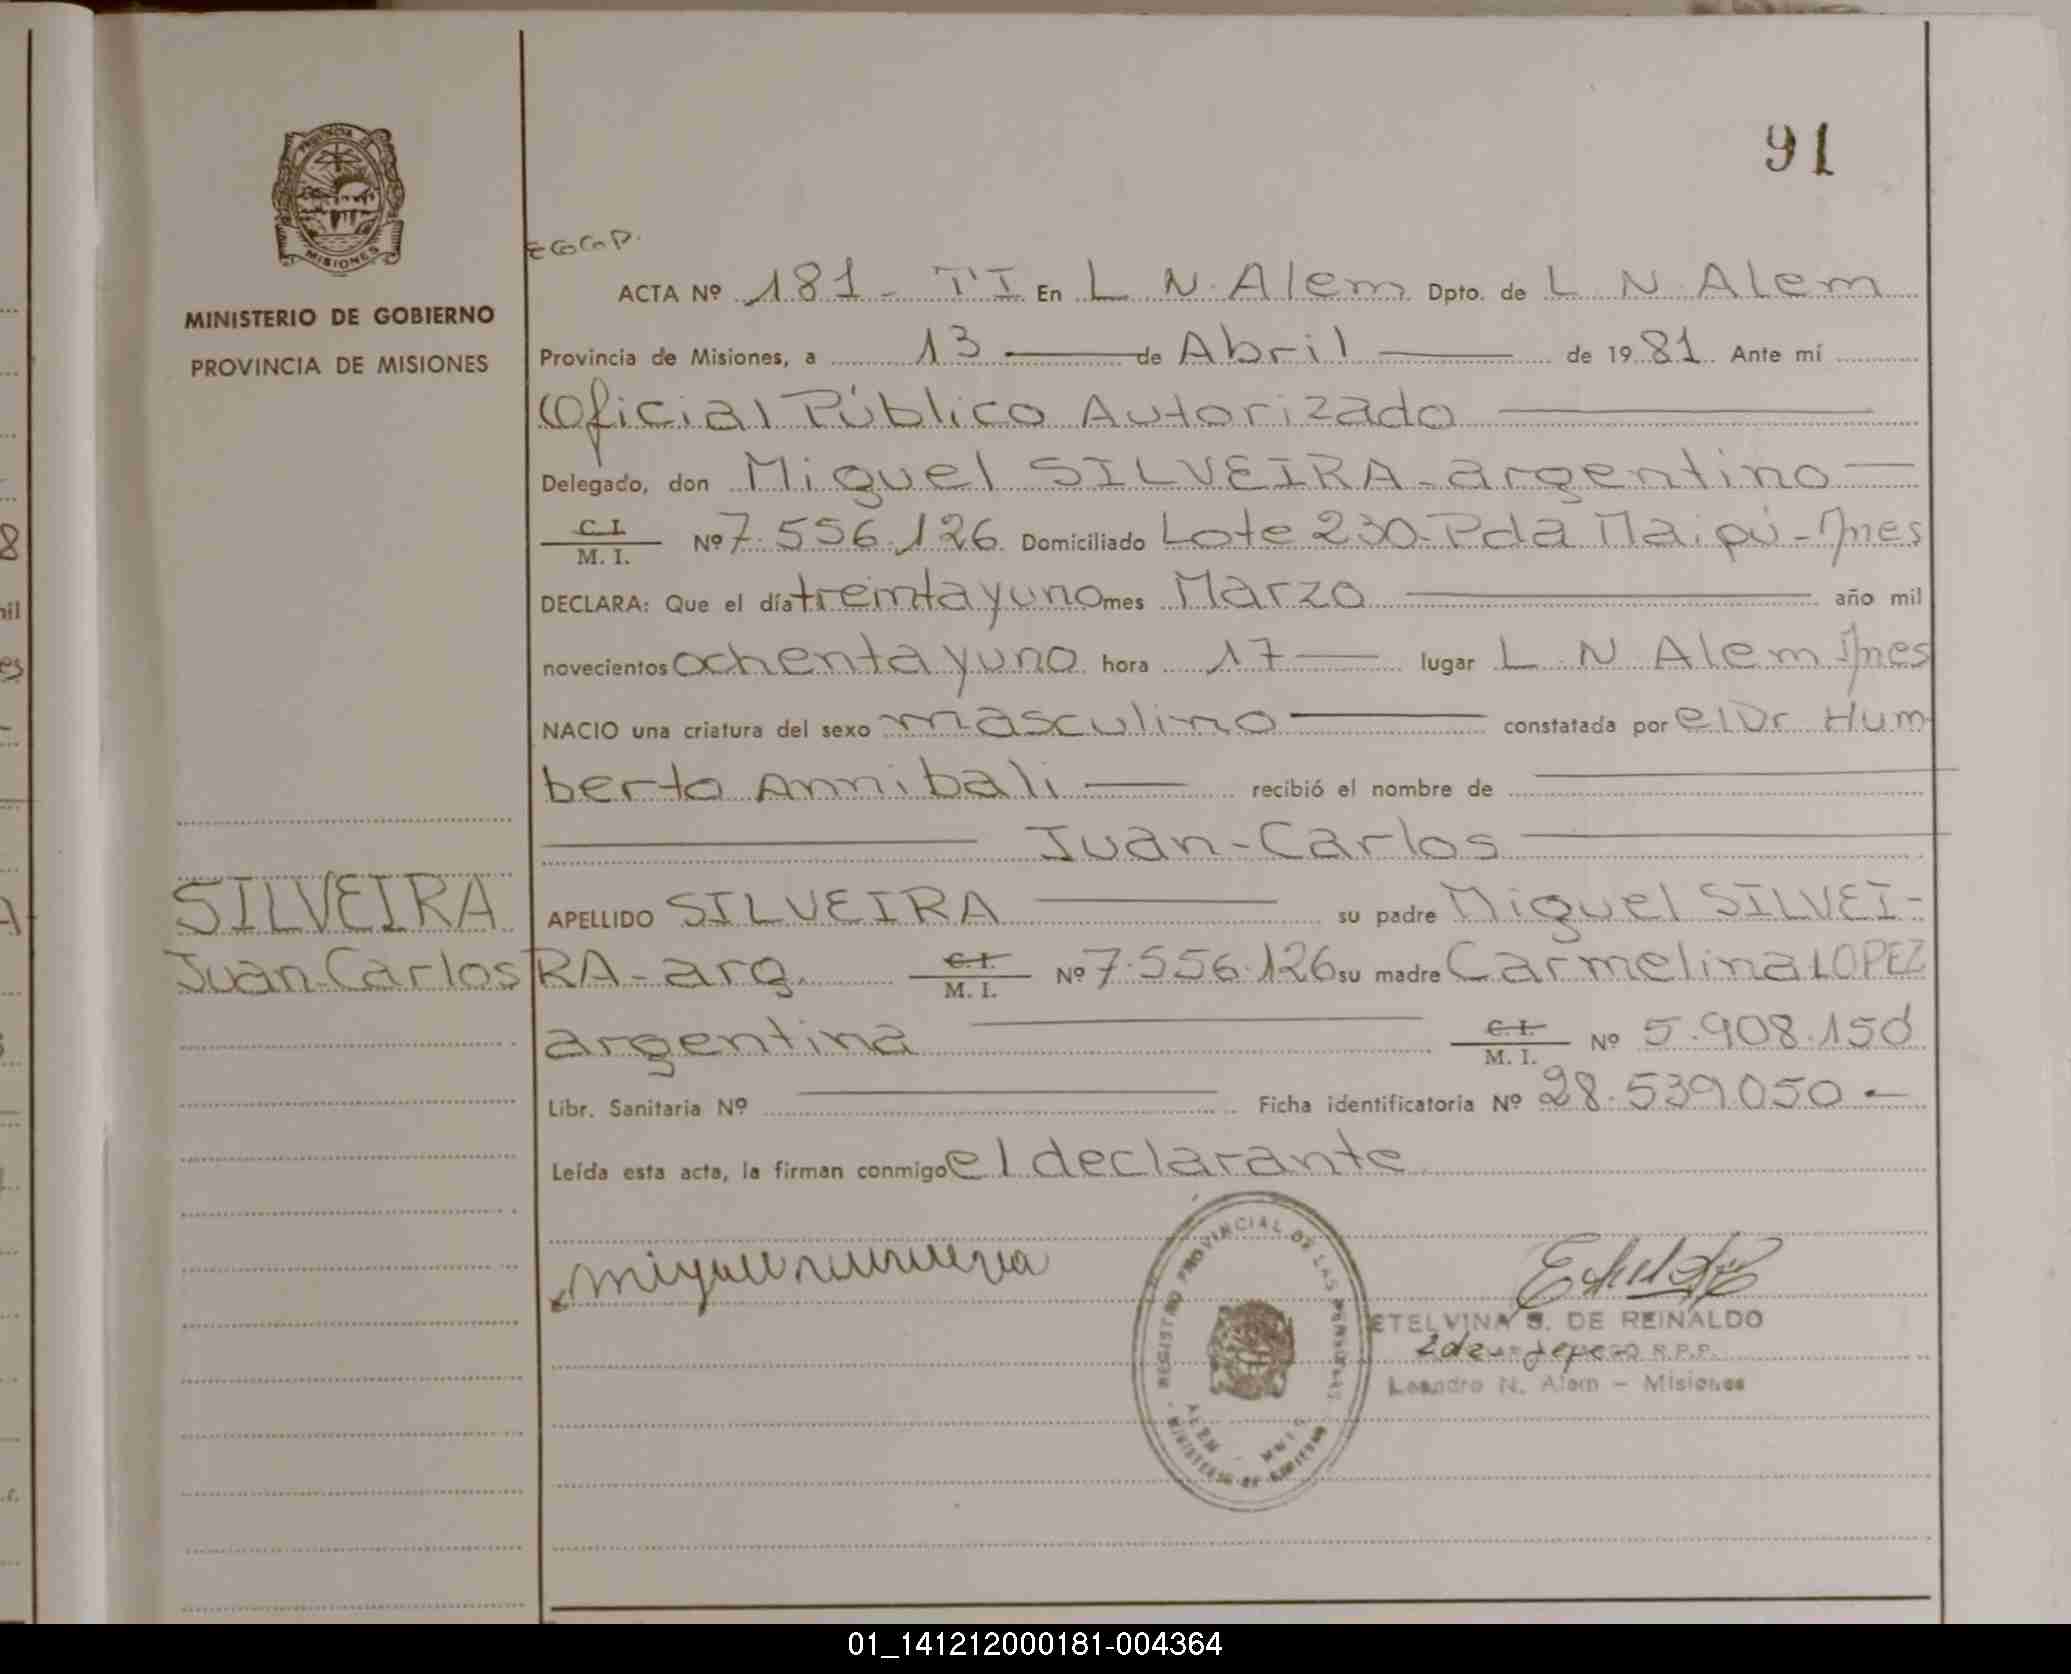 91
PROVINCIA DE
MISIONES
MINISTERIO DE GOBIERNO
PROVINCIA DE MISIONES
ACTA Nº 181 - TI En L N. Alem Dpto. de L N. Alem
Provincia de Misiones, a 13 de Abril de 1981 Ante mí
Oficial Público Autorizado
Delegado, don Miguel SILVEIRA - argentino
C. I. / M. I. Nº 7.556.126 Domiciliado Lote 230 - Pda Maipú - Mnes
DECLARA: Que el día treinta y uno mes Marzo año mil
novecientos ochenta y uno hora 17 lugar L N Alem Mnes
NACIO una criatura del sexo masculino constatada por el Dr Hum
berto Annibali recibió el nombre de
Juan - Carlos
APELLIDO SILVEIRA su padre Miguel SILVEI-
RA - arg. C. I. / M. I. Nº 7.556.126 su madre Carmelina LOPEZ
argentina C. I. / M. I. Nº 5.908.150
Libr. Sanitaria Nº Ficha identificatoria Nº 28.539050 -
Leída esta acta, la firman conmigo el declarante
SILVEIRA
Juan Carlos
REGISTRO PROVINCIAL DE LAS PERSONAS
ALEM MNES
MINISTERIO DE GOBIERNO
ETELVINA S. DE REINALDO
R.P.P.
Leandro N. Alem - Misiones
01_141212000181-004364